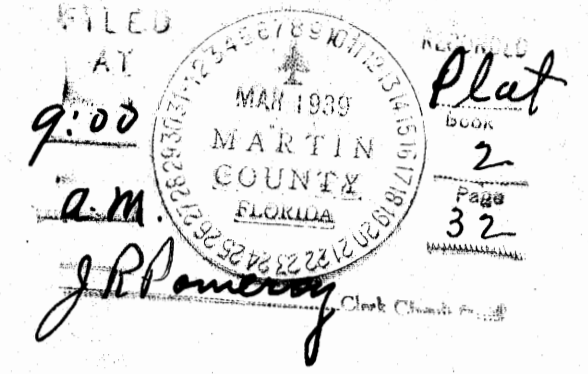 FILED
AT
9:00
a.m.
1 2 3 4 5 6 7 8 9 10 11 12 13 14 15 16 17 18 19 20 21 22 23 24 25 26 27 28 29 30 31
MAR 1939
MARTIN
COUNTY
FLORIDA
RECORDED
Plat
book
2
Page
32
J R Pomeroy
Clerk Circuit